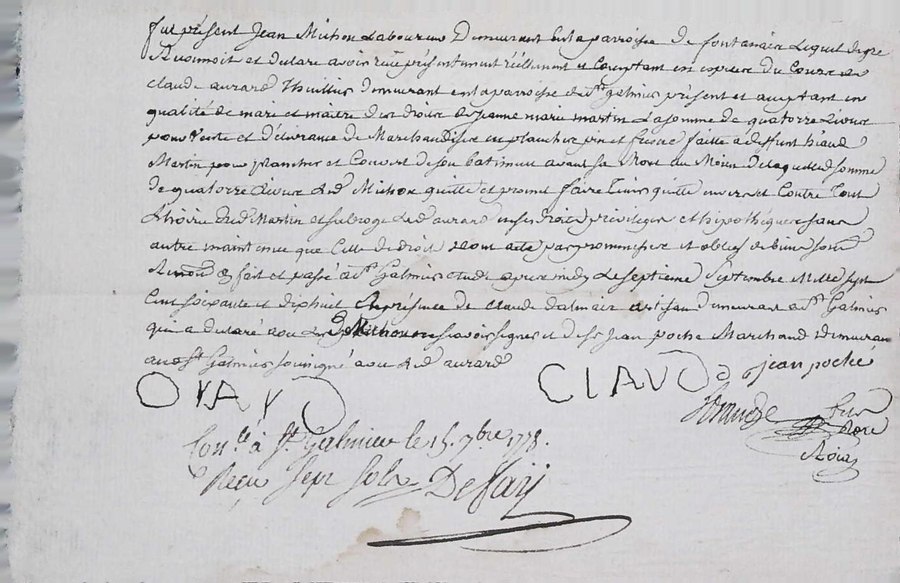 fut présent Jean Michon Laboureur Demeurant en la parroisse De fontanaise Lequel de gré
Reconnoit et declare avoir reçu présentement réellement et Comptant en espece du Cours de
claude aurard thuillier demeurant en la parroisse de St galmier présent et acceptant en
qualité de mari et maitre des droits de jeanne marie martin La somme de quatorze Livres
pour Vente et délivrance de Marchandise en plancher faitte à deffunt
Martin pour plancher et Couvert de son batiment avant sa Mort au Moien de laquelle somme
de quatorze Livres Led Michon quitte et promet faire tenir quitte envers et Contre tout
Lhoirie dud Martin et subroge Led aurard en ses droits privileges et hipothéques sans
autre maintenue que Celle de droit Dont acte par promesses et oblig de biens
fait et passé a St Galmier etude apres midy Le septieme Septembre Mille sept
Cent soixante et dixhuit En presence de claude dalmais artisan demeurant a St Galmier
qui a declaré avec Led Michon ne scavoir signer et de Sr Jean poche Marchand Demeurant
aud St Galmier soussigné avec Led aurard
OYAYD CLAUD jean poche
Con.lé à St Galmier le 15 7bre 1778.
Reçu sept sols DeSarj